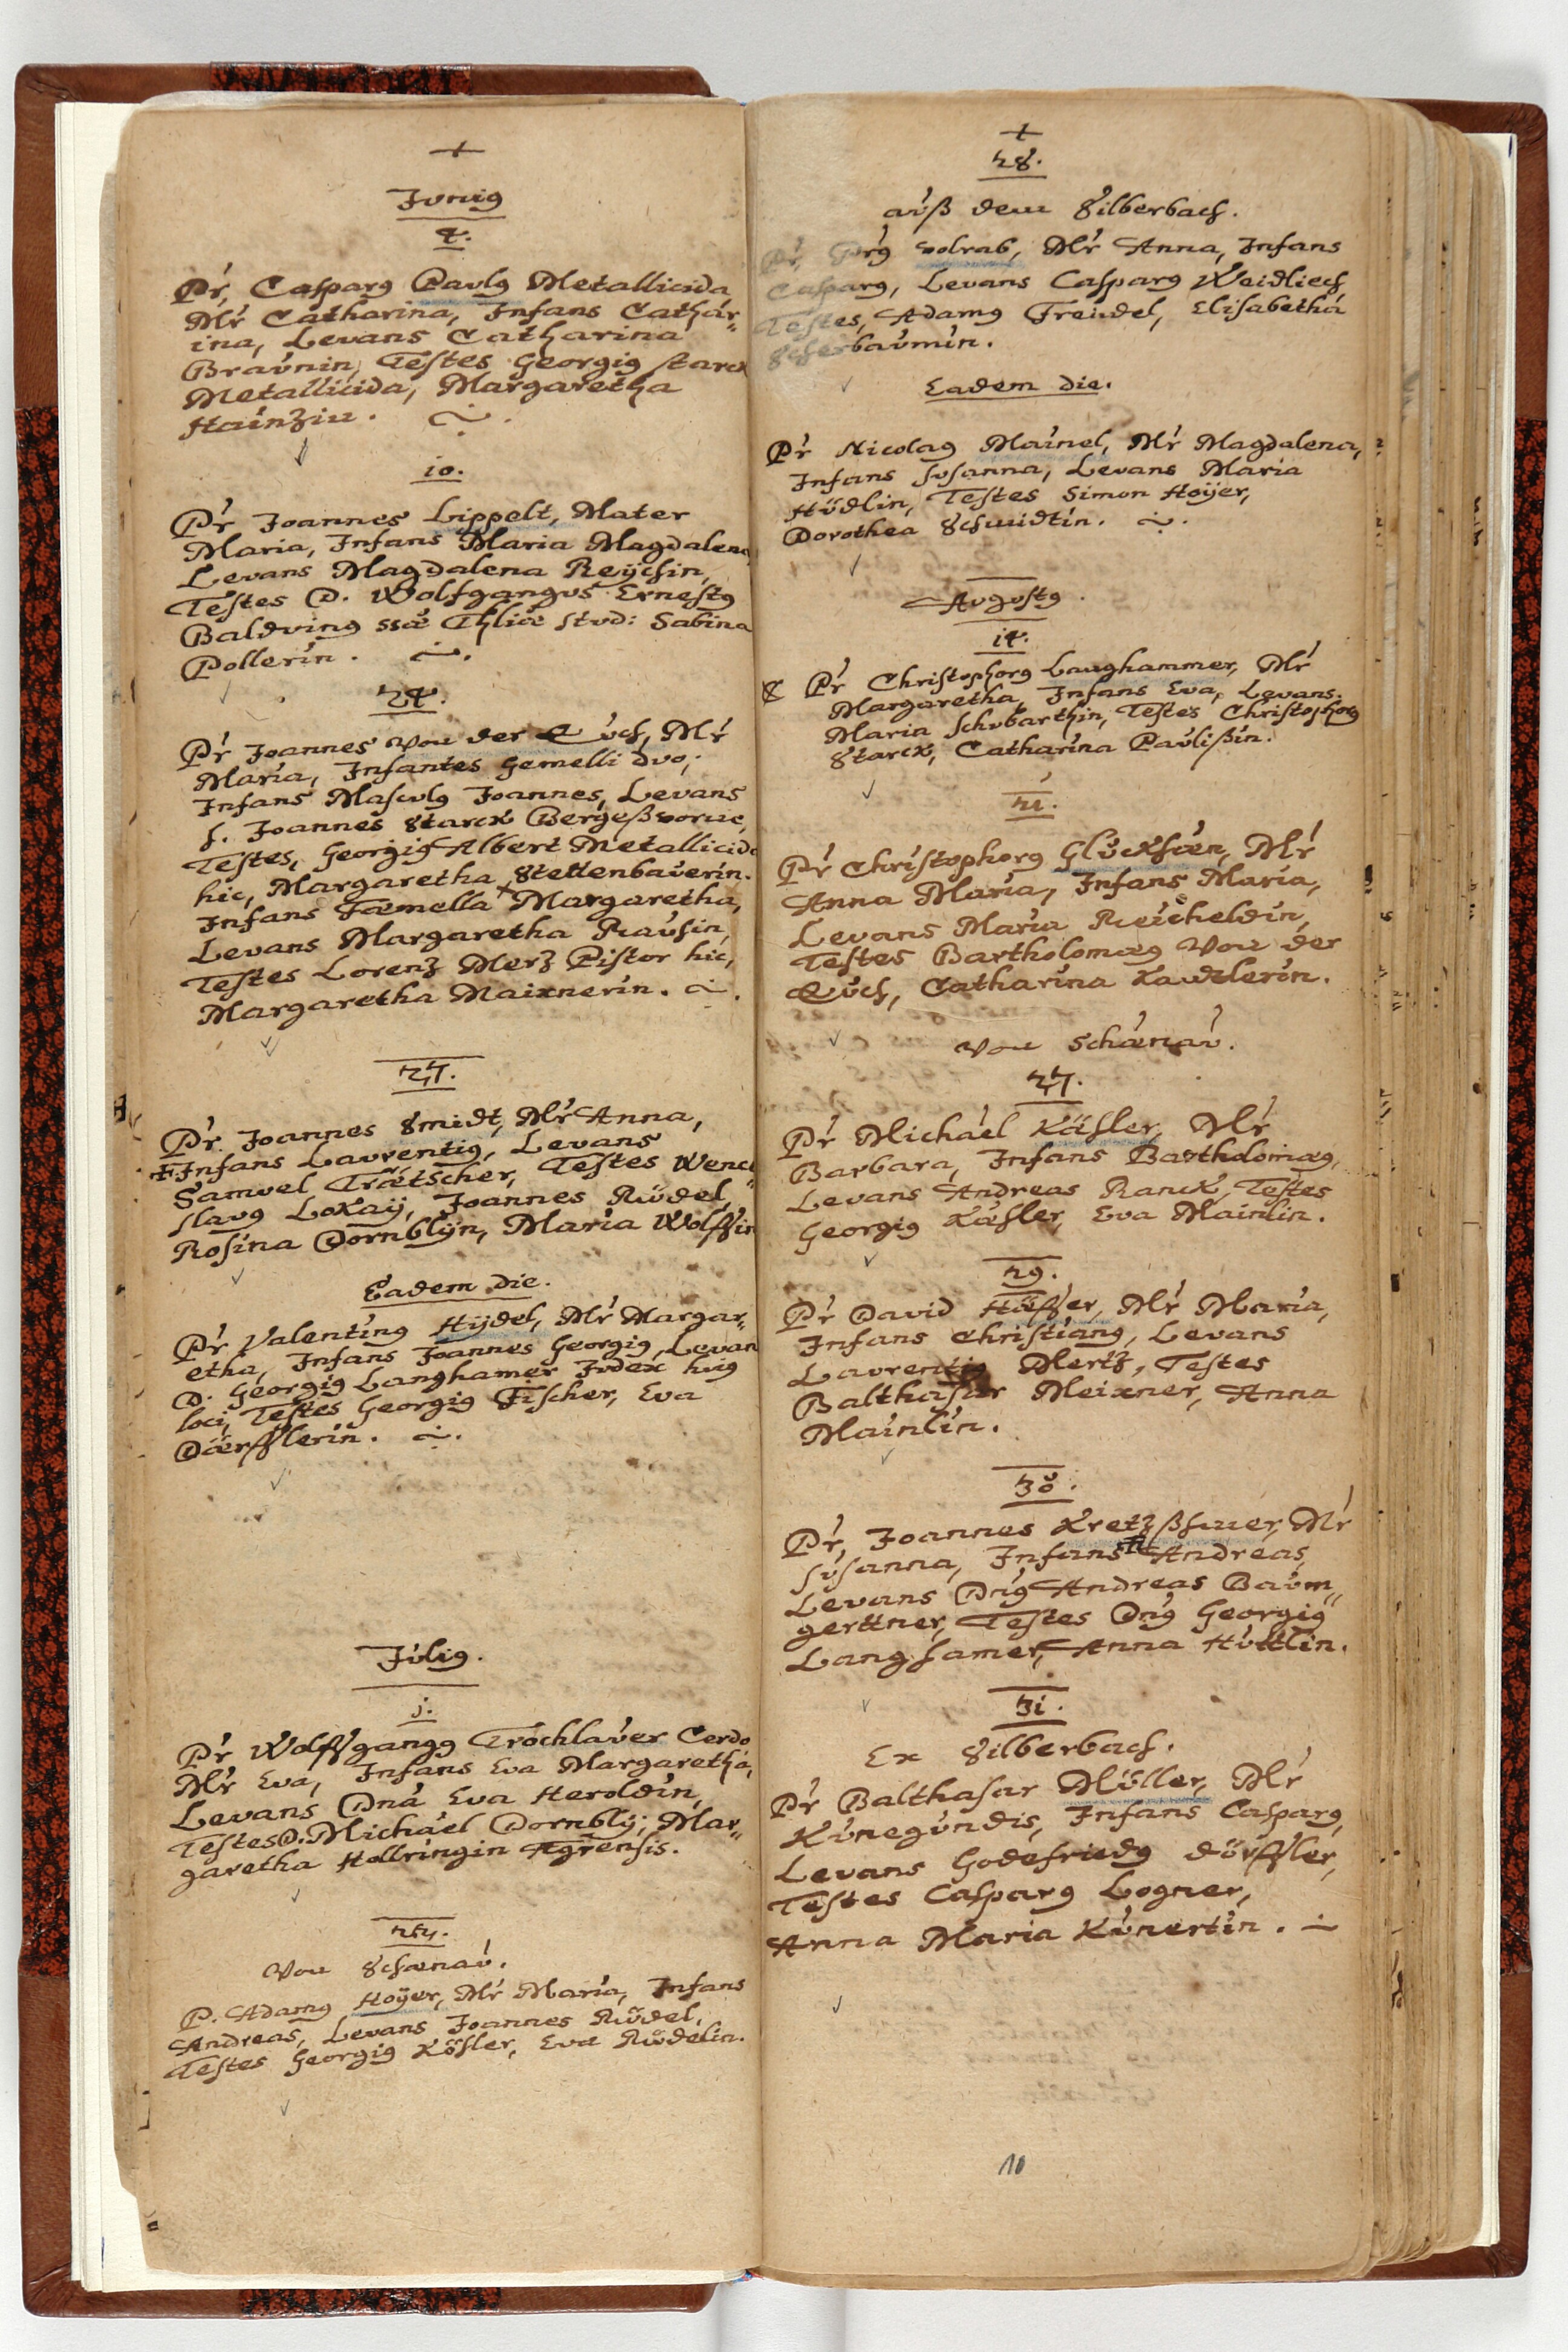 Junig
4.
Pr, Casparg Paulg Metallicida
Mr Catharina, Infans Cathar„
ina, Levans Catharina
Braunin, Testes Georgig starck
Metallicida, Margaretha
Hainzin.
io.
Pr Joannes Lippelt, Mater
Maria, Infans Maria Magdalena
Levans Magdalena Reÿchin,
Testes D. Wolfgangus Ernestg
Balduing ssæ Thliæ stud: Sabina
Pollerin.
24.
Pr Joannes von der Eych, Mr
Maria, Infantes Gemelli duo;
Infans Masculg Joannes, Levans
s. Joannes Starck Bergeßworne,
Testes, Georgig Albert Metallicida
hic, Margaretha Stettenbauerin.
Infans Fæmella Margaretha,
Levans Margaretha Rausin,
Testes Lorenz Merz Pistor hic,
Margaretha Maixnerin.
27.
Pr. Joannes Smidt, Mr Anna,
Infans Laurentig, Levans
Samuel Trätscher, Testes Wence„
slaug Lokaÿ, Joannes Rüdel,
Rosina Dornblÿn, Maria Wolffin
Eadem die.
Pr Valenting Hÿdel, Mr Margar„
etha, Infans Joannes Georgig, Levan
D. Georgig Langhamer Judex huig
loci, Testes Georgig Fischer, Eva
Därfflerin.
Julig.
j.
Pr Wolffgangg Trochlauer Cerdo
Mr Eva, Infans Eva Margaretha,
Levans Dna Eva Heroldin,
Testes D. Michael Dornblÿ, Mar„
garetha Hollringin Agrensis.
von Schænau.
P. Adamg Hoÿer, Mr Maria, Infans
Andreas, Levans Joannes Rüdel,
Testes Georgig Kösler, Eva Rüdelin.
28.
auß dem Silberbach.
Pr, Görg volrab, Mr Anna, Infans
Casparg, Levans Casparg Weidliech
Testes, Adamg Freudel, Elisabetha
Scherbaumin.
Eadem die.
Pr Nicolag Mainel, Mr Magdalena,
Infans Susanna, Levans Maria
Hüdlin, Testes Simon Hoÿer,
Dorothea Schmidtin.
Augustg.
i4.
Pr Christophorg Langhammer, Mr
Margaretha, Infans Eva, Levans
Maria Schubarthin, Testes Christophorg
Starck, Catharina Paulißin.
2i.
Pr Christophorg Glucksæn, Mr
Anna Maria, Infans Maria,
Levans Maria Reicheldin,
Testes Bartholomæg von der
Eych, Catharina
von Schænau.
27.
Pr Michael Käsler, Mr
Barbara, Infans Bartholomæg,
Levans Andreas Ranck, Testes
Georgig Käsler, Eva Mainlin.
29.
Pr David Häffer, Mr Maria,
Infans Christiang, Levans
Laurentig Mertz, Testes
Balthasar Meixner, Anna
Mainlin.
30.
Pr, Joannes Kretzßhmer, Mr
Susanna, Infans Andreas,
Levans Dng Andreas Baum„
gerttner, Testes Dng Georgig
Langhamer, Anna Hüttlin.
3i.
Ex Silberbach.
Pr Balthasar Müller, Mr
Kunegundis, Infans Casparg,
Levans Godefriedg Dörffler,
Testes Casparg Logner,
Anna Maria Kunertin.
10